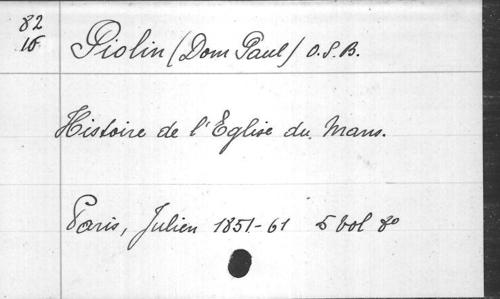 82
16
Piolin (Dom Paul) O.S.B.
Histoire de l'Eglise du Mans.
Paris, Julien 1851-61 5 vol 8º